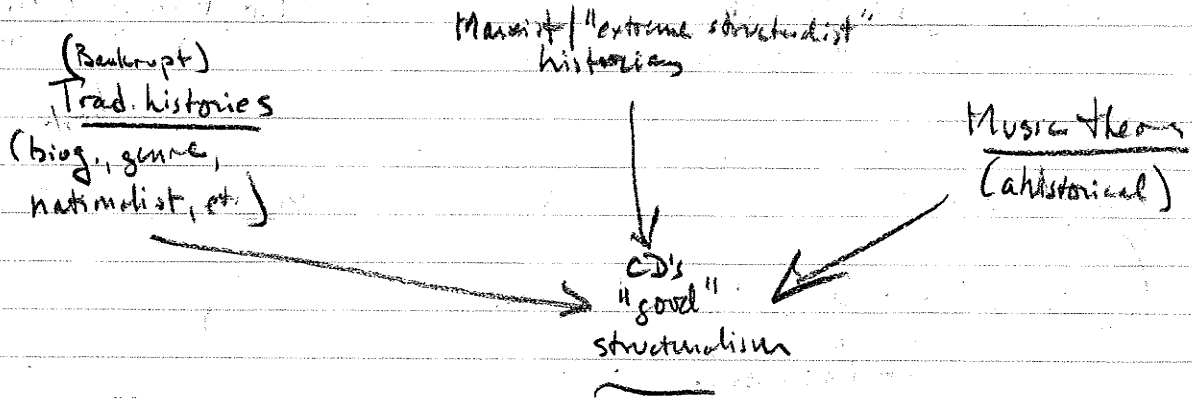 Marxist/"extreme structuralist"
histories
(Bankrupt)
Trad. histories
(biog., genre,
nationalist, et.)
Music theory
(ahistorical)
CD's
"good"
structuralism